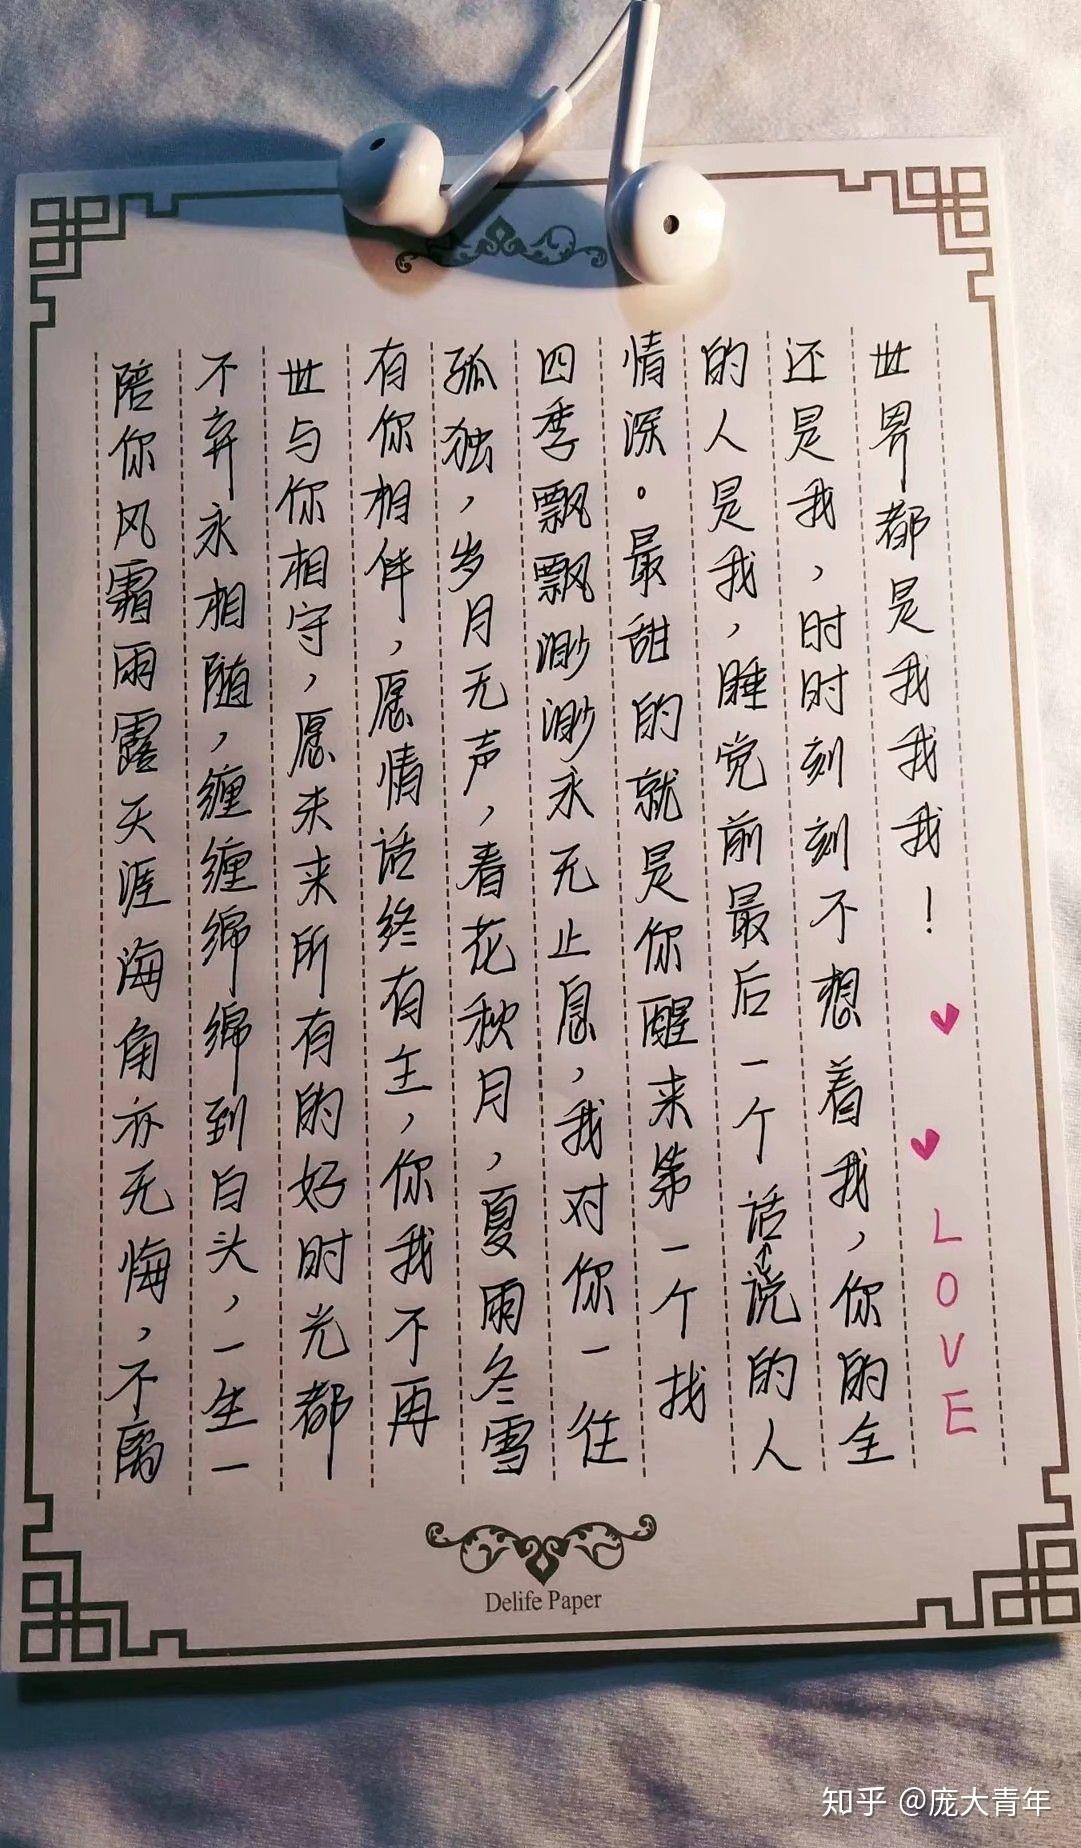 陪你风霜雨露天涯海角亦无悔，不离
不弃永相随，缠缠绵绵到白头，一生一
世与你相守，愿未来所有的好时光都
有你相伴，愿情话终有主，你我不再
孤独，岁月无声，春花秋月，夏雨冬雪
四季飘飘渺渺永无止息，我对你一往
情深。最甜的就是你醒来第一个找
的人是我，睡觉前最后一个话说的人
还是我，时时刻刻不想着我，你的全
世界都是我我我！
LOVE
Delife Paper
知乎 @庞大青年